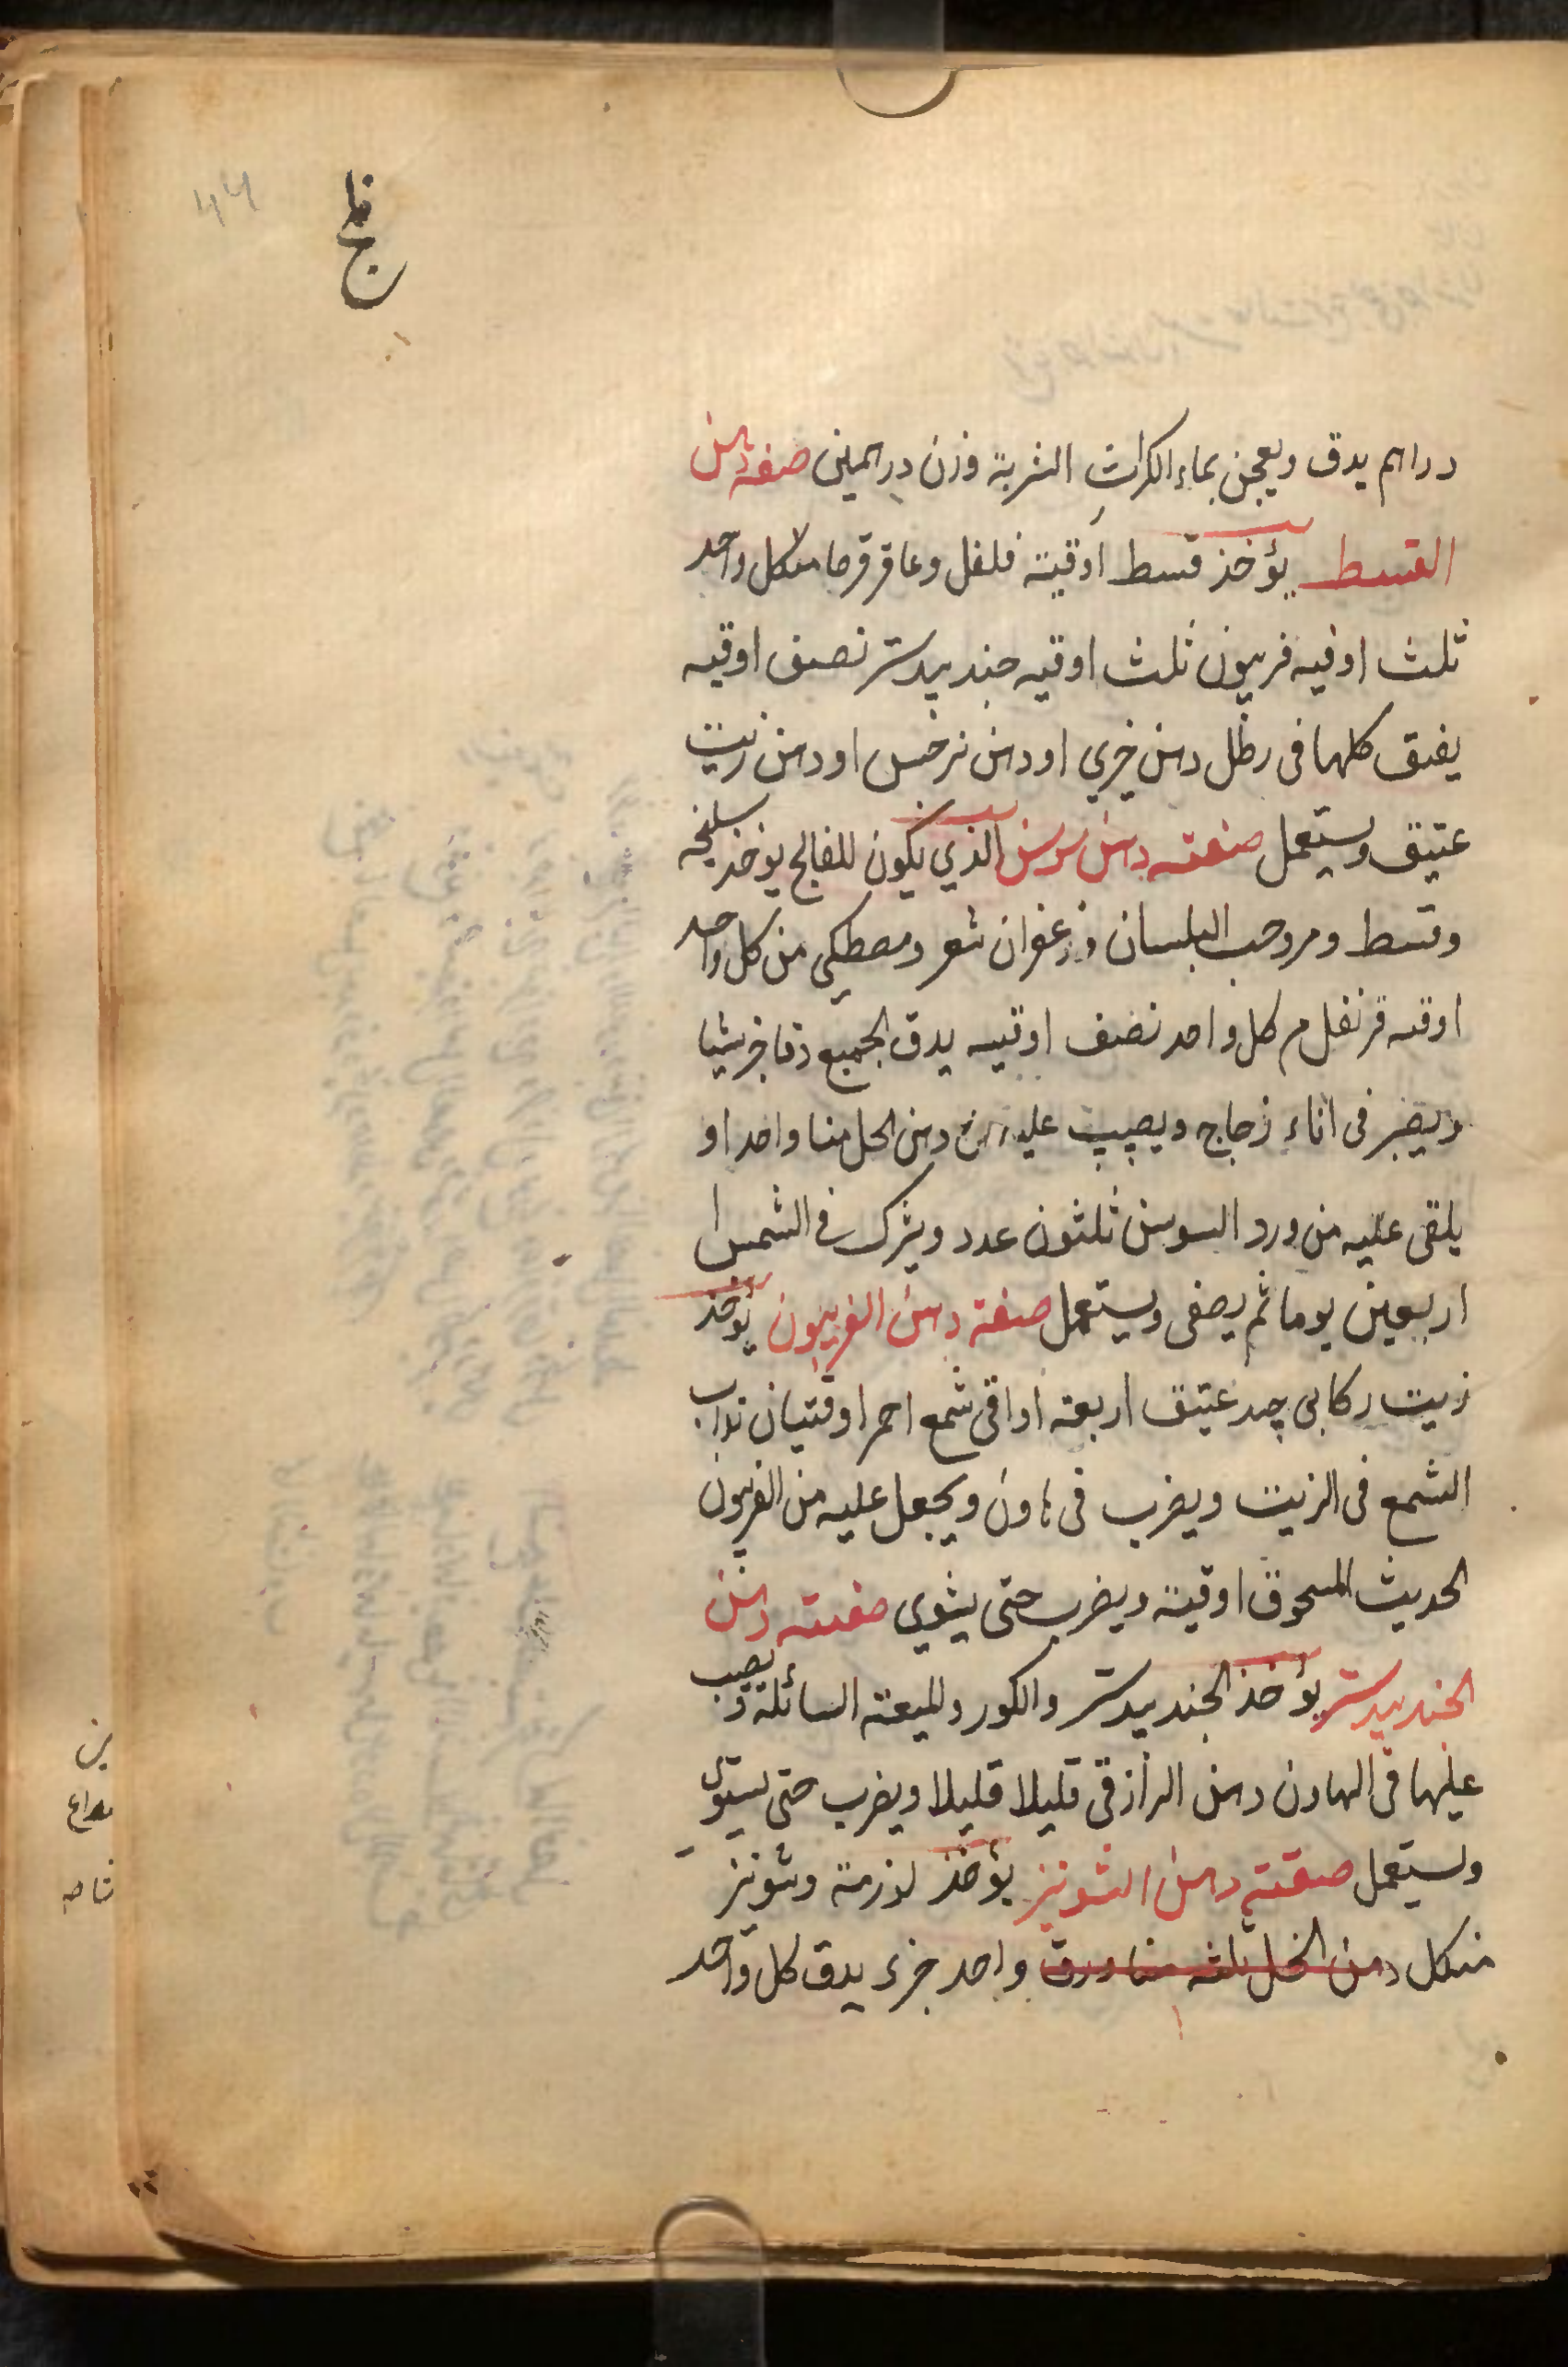 فالج
دراهم يدق ويعجن بماء الكراث الشربة وزن درهمين صفة دهن
القسط يؤخذ قسط اوقية فلفل وعاقرقرحا من كل واحد
ثلث اوقيه فربيون ثلث اوقيه جندبيدستر نصف اوقيه
يفتق كلها فى رطل دهن خيري او دهن نرجس او دهن زيت
عتيق ويستعمل صنعته دهن سوسن الذي يكون للفالج يوخذ سليخه
وقسط ومر وحب البلسان وزعفران شعر ومصطكي من كل واحد
اوقيه قرنفل م كل واحد نصف اوقيه يدق الجميع دقا جريشا
ويصير فى اناء زجاج ويصب عليه دهن الحل منا واحدا و
يلقى عليه من ورد السوسن ثلثون عدد ويترك فى الشمس
اربعين يوما ثم يصفى ويستعمل صفة دهن الفربيون يؤخذ
زيت ركابى جيد عتيق اربعة اواقى شمع احمر اوقيتان يذاب
الشمع فى الزيت ويضرب فى هاون ويجعل عليه من الفربيون
الحديث المسحوق اوقية ويضرب حتى يستوي صفته دهن
الجندبيدستر يؤخذ الجندبيدستر والكور والميعة السائلة ويصب
عليها فى الهاون دهن الرازقى قليلا قليلا ويضرب حتى يستوى
ويستعمل صفته دهن الشونيز يؤخذ لوز مرة وشونيز
من كل دهن الخل ثلثه منا ورق واحد جزء يدق كل واحد